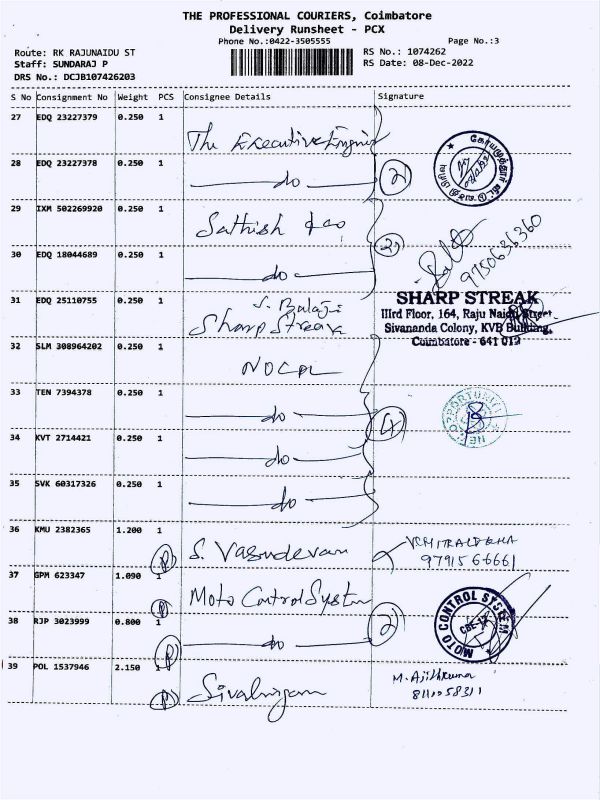 THE PROFESSIONAL COURIERS, Coimbatore
Delivery Runsheet - PCX
Phone No.:0422-3505555 Page No.:3
Route: RK RAJUNAIDU ST RS No.: 1074262
Staff: SUNDARAJ P RS Date: 08-Dec-2022
DRS No.: DCJB107426203
S No Consignment No Weight PCS Consignee Details Signature
27 EDQ 23227379 0.250 1
The Executive Engineer
28 EDQ 23227378 0.250 1
do 2
29 IXM 502269920 0.250 1
Sathish & co
30 EDQ 18044689 0.250 1 2
do 9750636360
31 EDQ 25110755 0.250 1
S. Balaji
Sharp Streak
SHARP STREAK
IIIrd Floor, 164, Raju Naidu Street,
Sivananda Colony, KVB Building,
Coimbatore - 641 012
32 SLM 308964202 0.250 1
NOCPL
33 TEN 7394378 0.250 1
do 4
34 KVT 2714421 0.250 1
do
35 SVK 60317326 0.250 1
do
36 KMU 2382365 1.200 1
P S. Vasudevan
9791566661
37 GPM 623347 1.090 1
P Moto Control System
MOTO CONTROL SYSTEM
CBE-12
38 RJP 3023999 0.800 1
P do 2
39 POL 1537946 2.150 1
P M. Ajithkumar